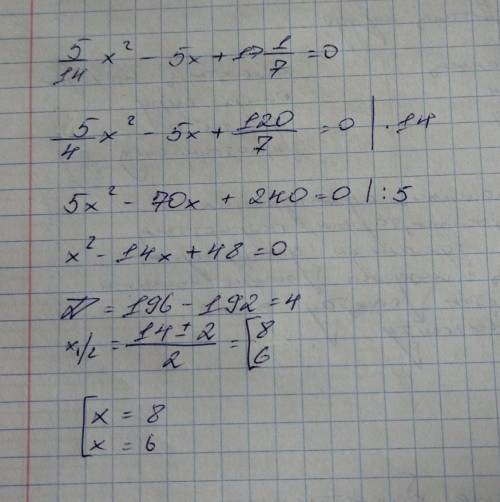 5/14 x² - 5x + 17 1/7 = 0
5/4 x² - 5x + 120/7 = 0 | · 14
5x² - 70x + 240 = 0 | : 5
x² - 14x + 48 = 0
D = 196 - 192 = 4
x1/2 = (14 ± 2)/2 = [8 6
[x = 8
x = 6